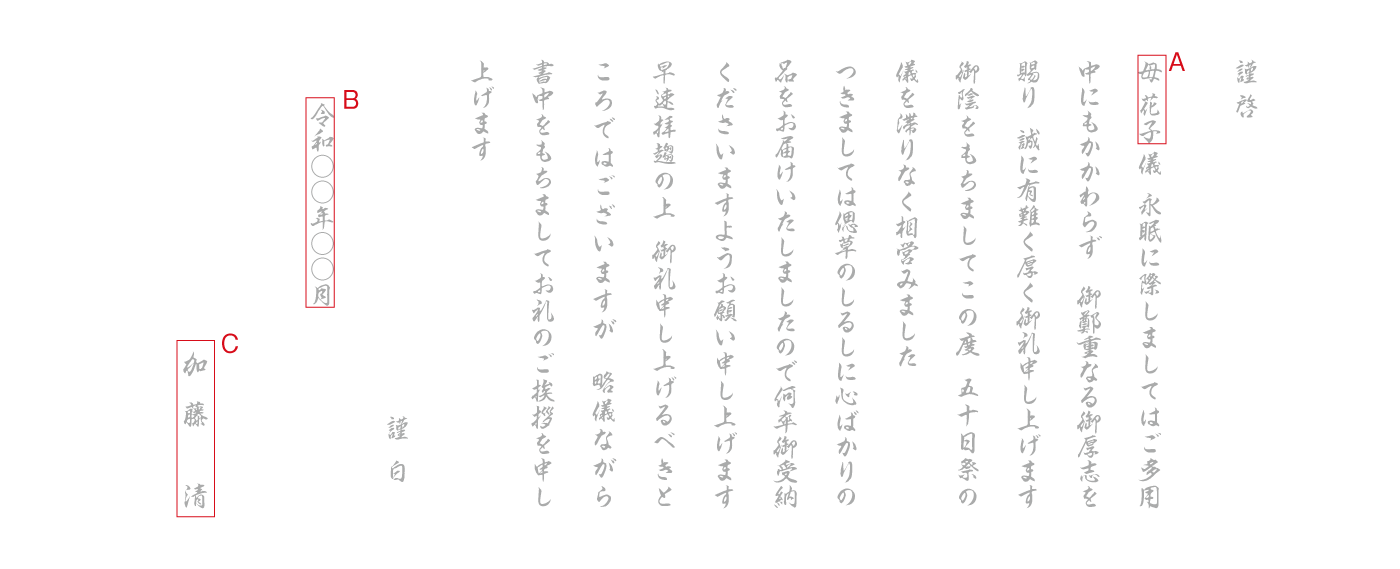 謹啓
母 花子儀 永眠に際しましてはご多用
中にもかかわらず 御鄭重なる御厚志を
賜り 誠に有難く厚く御礼申し上げます
御陰をもちましてこの度 五十日祭の
儀を滞りなく相営みました
つきましては偲草のしるしに心ばかりの
品をお届けいたしましたので何卒御受納
くださいますようお願い申し上げます
早速拝趨の上 御礼申し上げるべきと
ころではございますが 略儀ながら
書中をもちましてお礼のご挨拶を申し
上げます
謹白
令和〇〇年〇〇月
加藤 清
A
B
C